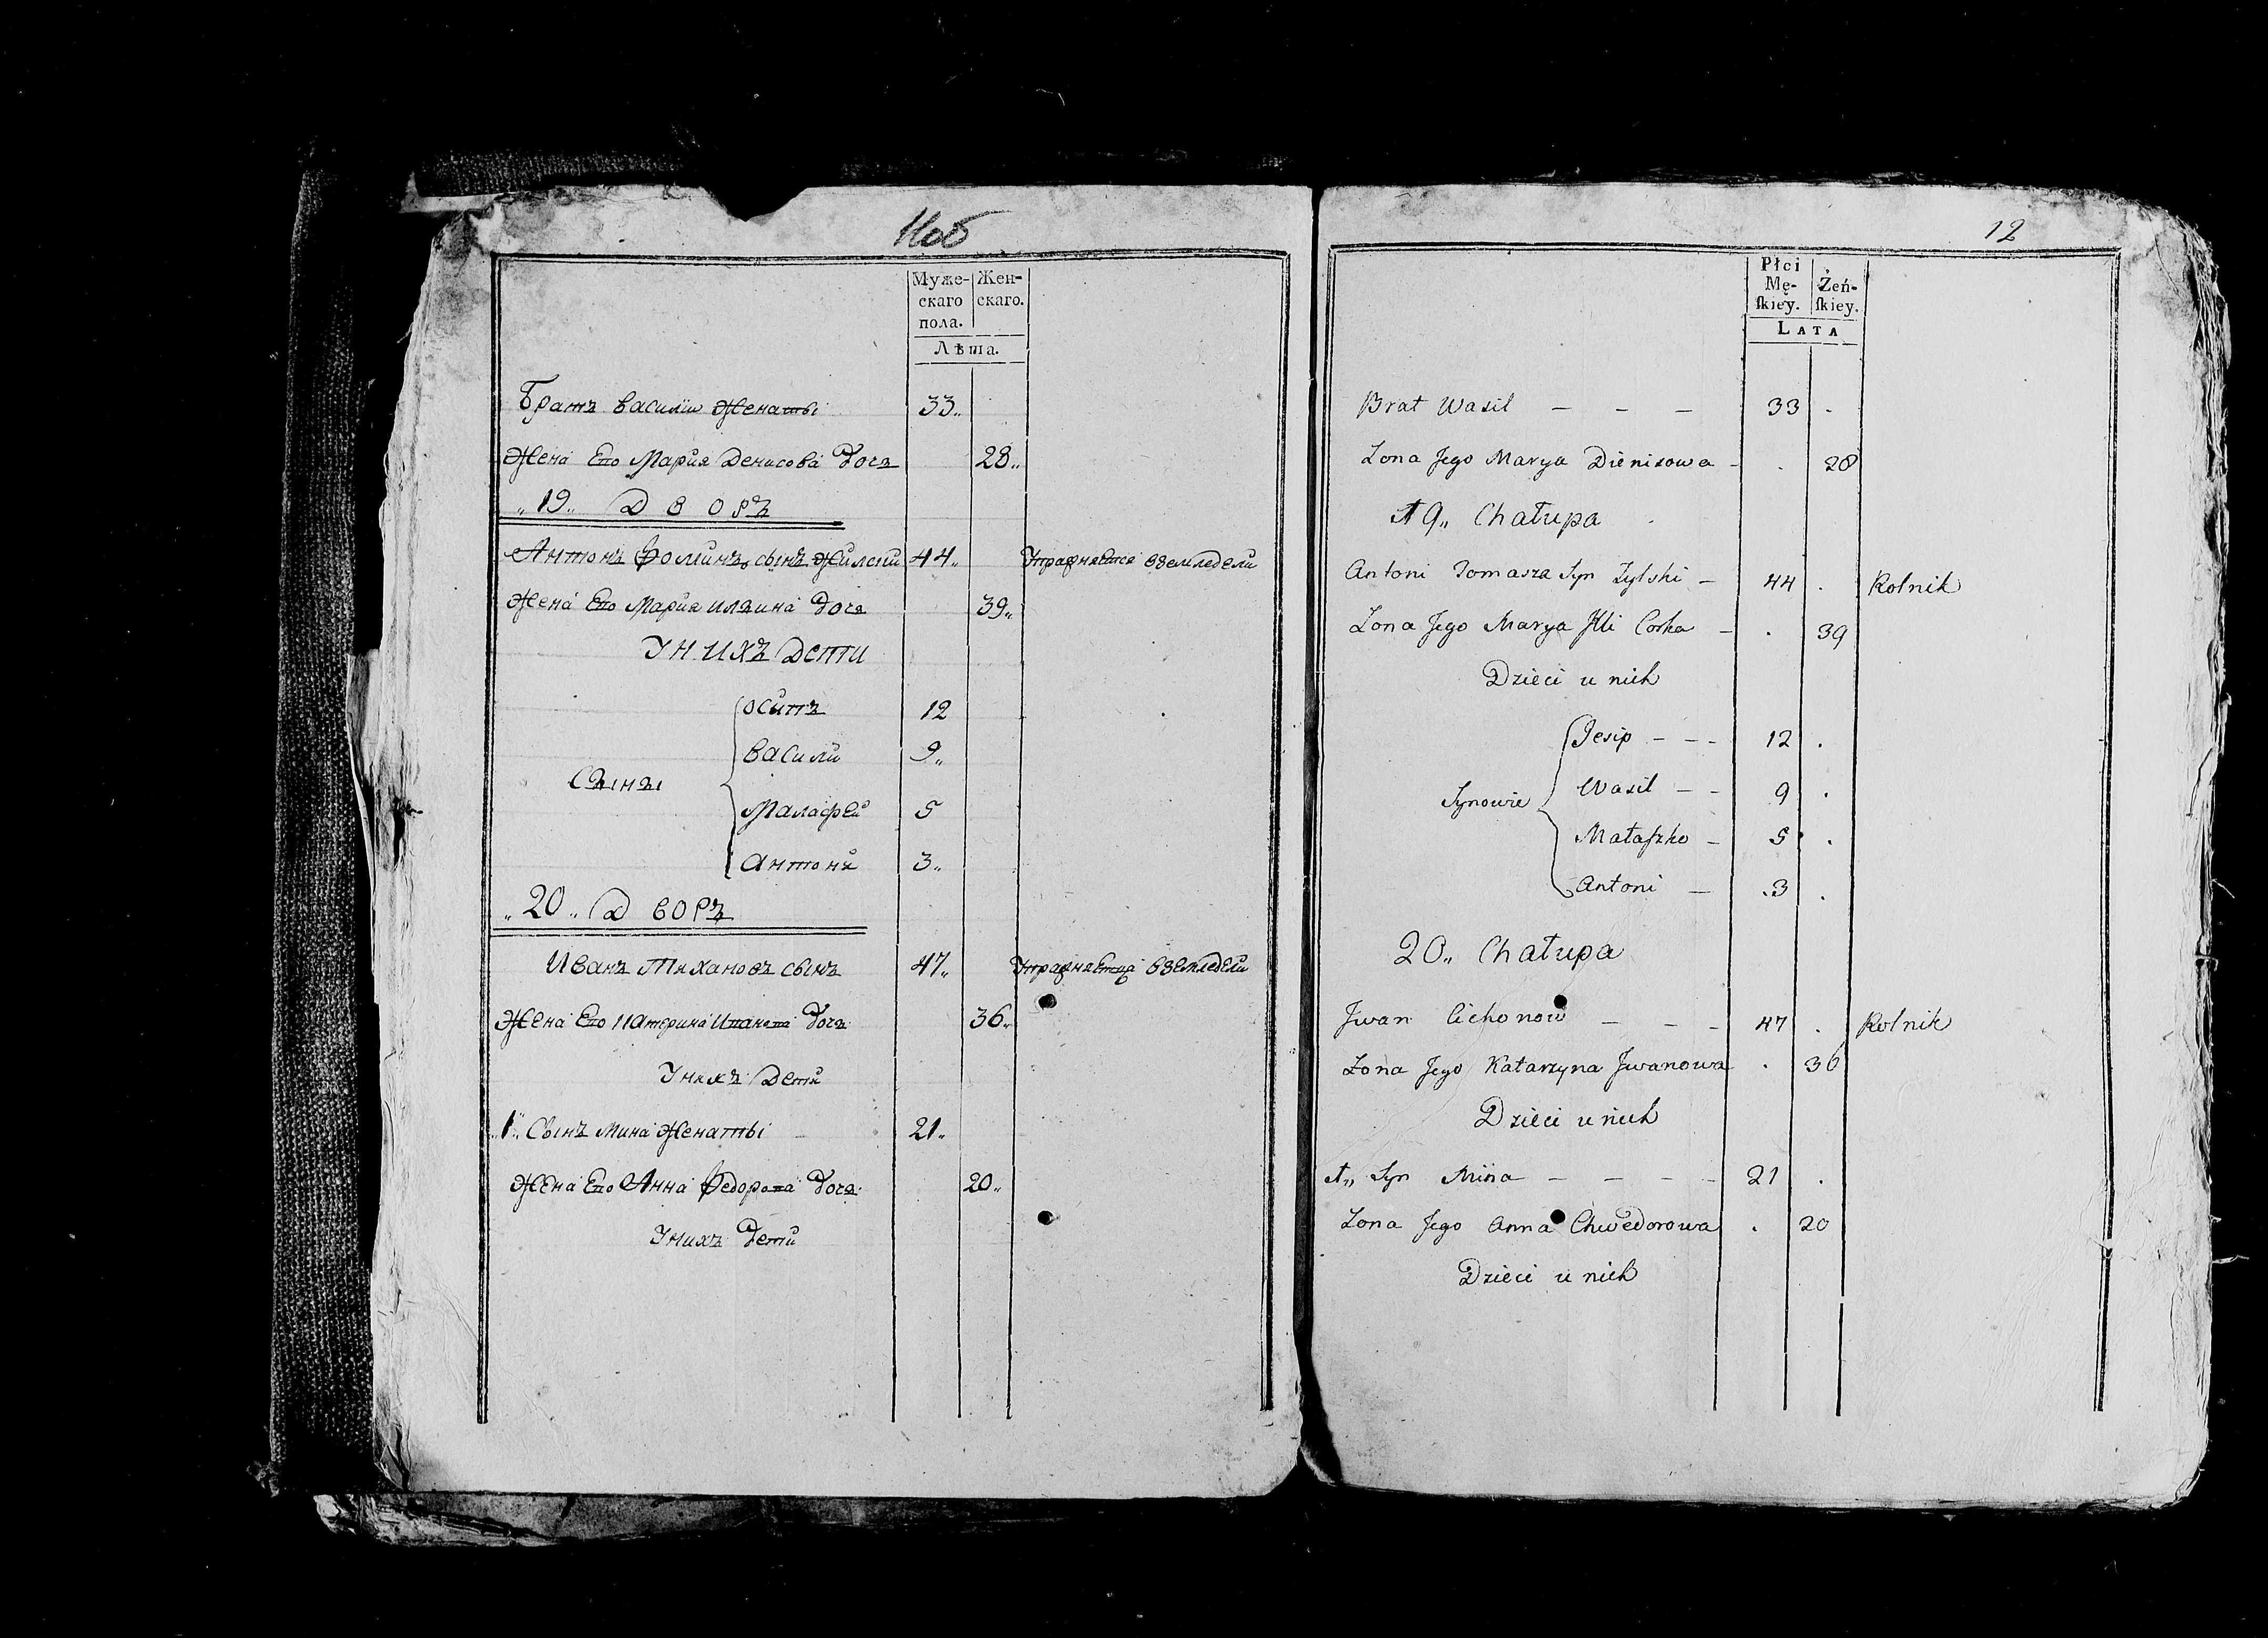 11об
Муже-
скаго
пола.
Жен-
скаго.
Лѣта.
Братъ василіи женаты 33
жена Его Мария денисова дочь 28
19 ДВОРЪ
Антонъ Фоминъ сынъ жилский 44 Упражняется вземледели
жена Его Мария иляина дочь 39
У нихъ дети
Сыны
осипъ 12
василй 9
Малафей 5
антони 3
20 Д ВОРЪ
Иванъ Тиханов сынъ 47 Упражняетца вземледели
жена Его Катерина дочь 36
У нихъ дети
1 Сынъ мина женаты 21
жена Его Анна Федорова дочь 20
У нихъ дети
12
Płci
Mę-
ſkiey.
Żeń-
ſkiey.
LATA
Brat Wasil — — — 33 .
Zona Jego Marya Dienisowa - . 28
19„ Chałupa
Antoni Tomasza Syn Zylski — 44 . Rolnik
Zona Jego Marya Jlli Corka — . 39
Dzieci u nich
Synowie
Jesip - - - 12 .
Wasil — - 9 .
Małaszko — 5 .
Antoni — 3 .
20„ Chałupa
Jwan Cichonow — — - 47 . Rolnik
Zona Jego Katarzyna Jwanowa . 36
Dzieci u nich
1„ Syn Mina — — — - 21 .
Zona Jego Anna Chwedorowa . 20
Dzieci u nich